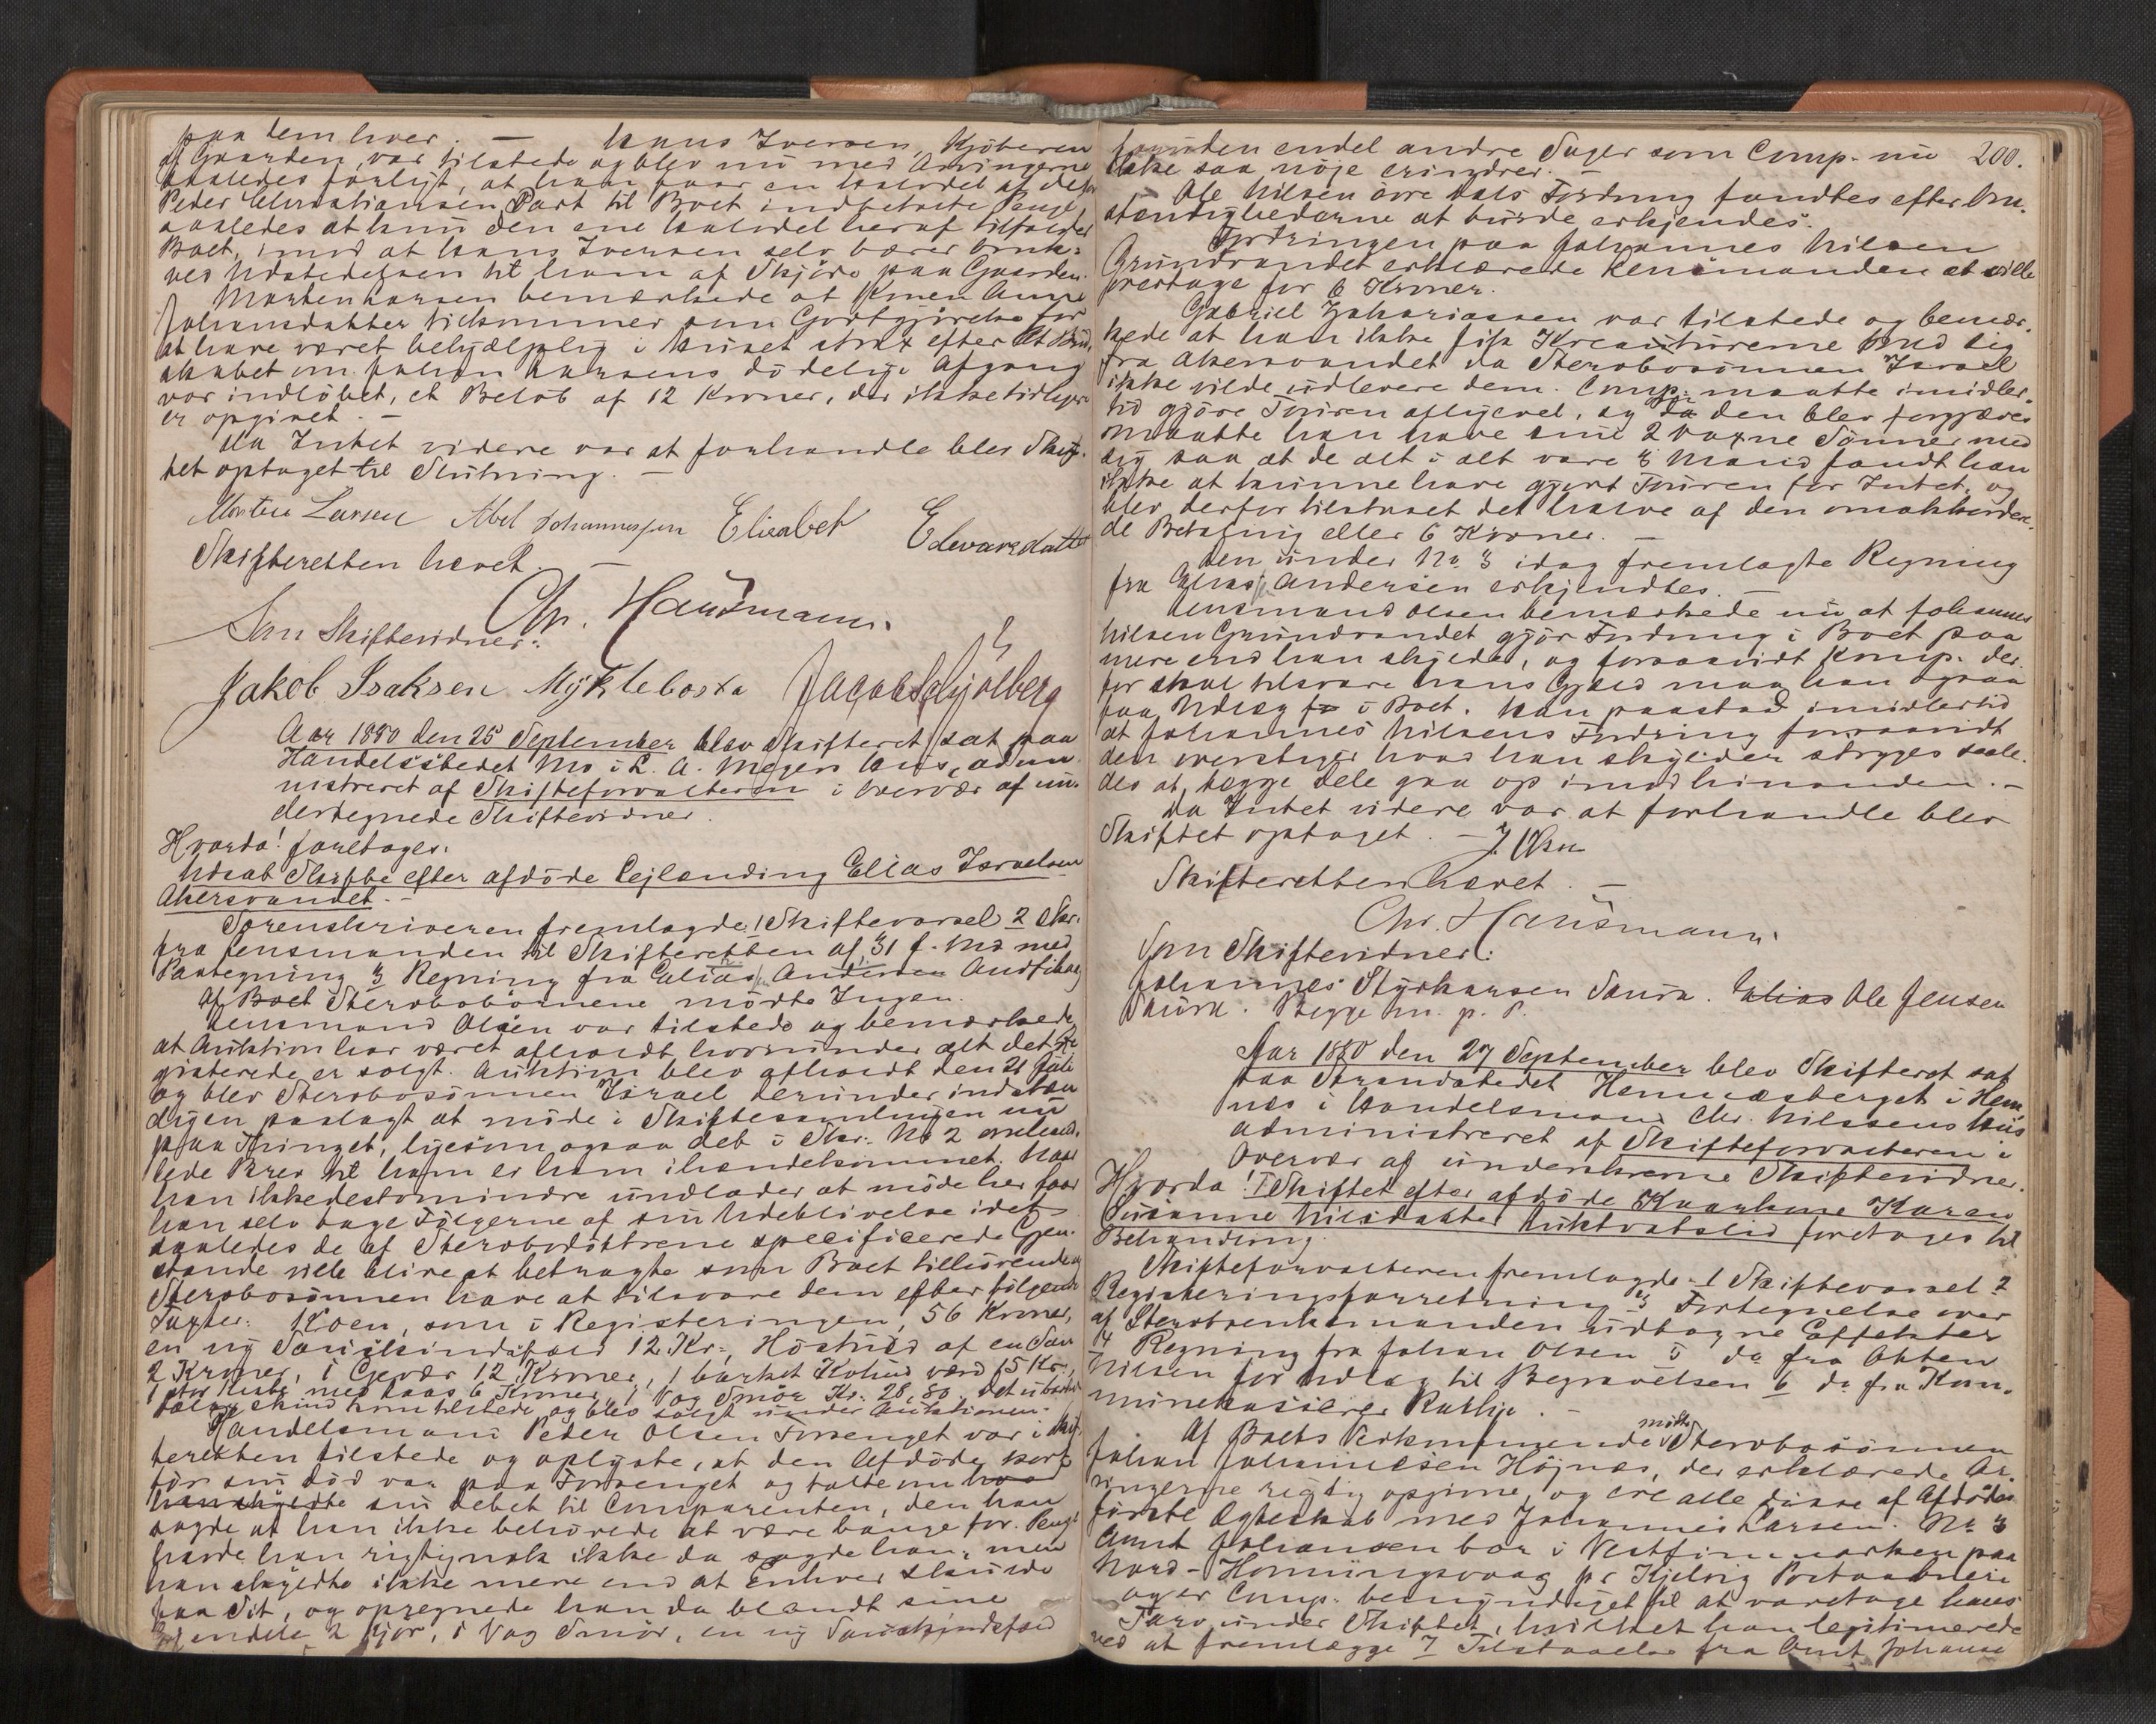 paa dem hver. — Hans Iversen, Kjöberen
af Gaarden, var tilstede og blev nu med Arvingerne
saaledes forligt, at han faar en Halvdel af defs
Peder Christiansen Part til Boet indbetalte Penge,
saaledes at kun den ene Halvdel heraf tilfalder
Boet, imod at Hans Iversen selv bærer Omk:
ved Udstedelsen til ham af Skjöde paa Gaarden.
Morten Larsen bemærkede at Konen Anne
Johansdatter tilkommer som Godtgjörelse for
at have været behjælplig i Huset strax efter at Bud,
skabet om Johan Larsens dödelige Afgang
var indlöbet, et Belöb af 12 Kroner, der ikke tidligere
er opgivet. —
Da Intet videre var at forhandle blev Skif-
tet optaget til Slutning. —
Morten Larsen Abel Johannessen Elisabet Edevardsdatter
Skifteretten hævet. —
Chr. Hausmann.
Som Skiftevidner:
Jakob Isaksen Myklebosta Jacob Schjölberg
Aar 1880 den 25 September blev Skifteret sat paa
Handelsstedet Mo i L. A. Meyers Hus, admi
nistreret af Skifteforvalteren i Overvær af un-
dertegnede Skiftevidner.
Hvorda! foretages:
Udsat Skifte efter afdöde Lejlending Elias Israelsen
Akersvandet. —
Sorenskriveren fremlagde 1 Skiftevarsel 2 Skr.
fra Lensmanden til Skifteretten af 31 f. Md med
Paategning 3 Regning fra Elias Andersen Andfiskaa
Af Boet Stervbobörnene mödte Ingen.
Lensmand Olsen var tilstede og bemærkede
at Auktion har været afholdt hvorunder alt det Re
gisterede er solgt. Auktion blev afholdt den 21 Juli
og blev Stervbosönnen Israel derunder indstæn
digen paalagt at möde i Skiftesamlingen nu
paa Thinget, ligesom ogsaa det i Skr. No 2 omhand-
lede Brev til ham er ham ihændekommet. Naar
han ikkedestomindre undlader at möde her faar
han selv tage Fölgerne af sin Udeblivelse idet
saaledes de af Stervbodöttrene specificerede Gjen-
stande ville blive at betragte som Boet tilhörende og
Stervbosönnen have at tilsvare dem efter fölgende
Taxter: Koen, som i Registeringen, 56 Kroner,
en ny Saueskindsfeld 12 Kr, Höstuld af en Sau
2 Kroner, 1 Gevær 12 Kroner, 1 barket Kohud værd 15 Kr,
1 stor Kiste med Laas 6 Kroner, 1 Vog Smör Kr. 28,80. Det ubarkede
Kalveskind kom tilstede og blev solgt under Auktionen.
Handelsmand Peder Olsen Forsenget var i Skif
teretten tilstede og oplyste, at den Afdöde kort
för sin Död var paa Forsenget og talte om hvad
han skyldte sin Debet til Comparenten, den han
sagde at han ikke behövede at være bange for. Penge
havde han rigtignok ikke da sagde han, men
han skyldte ikke mere end at Enhver skulde
faa Sit, og opregnede han da blandt sine
Ejendele 2 Kjör, 1 Vog Smör, en ny Saueskindsfeld
200.
foruden endel andre Sager som Comp. nu
ikke saa nöje erindrer. —
Ole Nilsen övre Dals Fordring fandtes efter Om-
stændighederne at burde erkjendes.
Fordringen paa Johannes Nilsen
Grundvandet erklærede Lensmanden at ville
overtage for 6 Kroner.
Gabriel Zakariassen var tilstede og bemær-
kede at han ikke fik Kreaturerne med sig
fra Akersvandet da Stervbosönnen Israel
ikke vilde udlevere dem. Comp. maatte imidler-
tid gjöre Turen alligevel, og da den blev forgjæves
maatte han have sine 2 voxne Sönner med
sig saa at de alt i alt vare 3 Mand fandt han
ikke at kunne have gjort Turen for Intet, og
blev derfor tilstaaet det halve af den omakkorde-
de Betaling eller 6 Kroner. —
Den under No 3 idag fremlagte Regning
fra Elias Andersen erkjendtes. —
Lensmand Olsen bemærkede nu at Johannes
Nilsen Grundvandet gjör Fordring i Boet paa
mere end han skylder, og forsaavidt Komp. der-
for skal tilsvare hans Gjæld maa han ogsaa
faa Udlæg for i Boet. Han paastod imidlertid
at Johannes Nilsens Fordring forsaavidt
den overstiger hvad han skylder stryges saale-
des at begge dele gaa op imod hinanden. —
Da Intet videre var at forhandle blev
Skiftet optaget. — J. Olsen
Skifteretten hævet. —
Chr. Hausmann.
Som Skiftevidner:
Johannes Styrkarsen Saura. Elias Ole Jensen
Saura. Begge m. p. P.
Aar 1880 den 27 September blev Skifteret sat
paa Strandstedet Hemnæsberget i Hem
næs i Handelsmand Chr. Nilssens Hus
administreret af Skifteforvalteren i
Overvær af underskrevne Skiftevidner.
Hvorda! I Skiftet efter afdöde Kaarkone Karen
Susanne Nilsdatter Luktvatslid foretages til
Behandling.
Skifteforvalteren fremlagde 1 Skiftevarsel 2
Registeringsforretning 3 Fortegnelse over
af Stervboenkemanden udtagne Effekter
4 Regning fra Johan Olsen 5 do fra Okten
Nilsen for Udlæg til Begravelsen 6 do fra Kom-
munekasserer Rutlje. —
Af Boets Vedkommende mödte Stervbosönnen
Johan Johannesen Höjnæs, der erklærede Ar-
vingerne rigtig opgivne, og ere alle disse af Afdödes
förste Ægteskab med Johannes Larsen. No 3
Amt Johansen bor i Vestfinmarken paa
Nord-Honningsvaag pr Kjelvig Postaabneri
og er Comp. bemyndiget til at varetage hans
Tarv under Skiftet, hvilket han legitimerede
ved at fremlægge 7 Tilstaaelse fra Amt Johanne